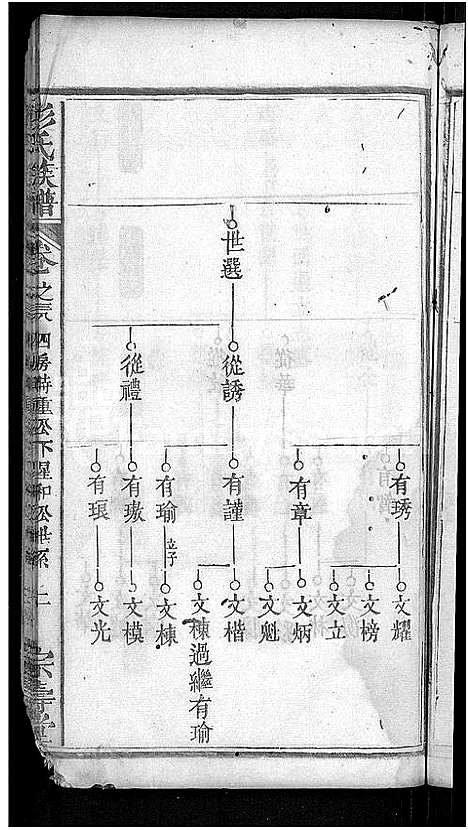 世選
從誘
從禮
有琇
有章
有謹
有瑜
有璈
有琅
立子
文耀
文榜
文立
文炳
文魁
文楷
文棟過繼有瑜
文棟
文模
文光
彭氏族譜
卷之
四房時重公下
公世系
宗壽堂